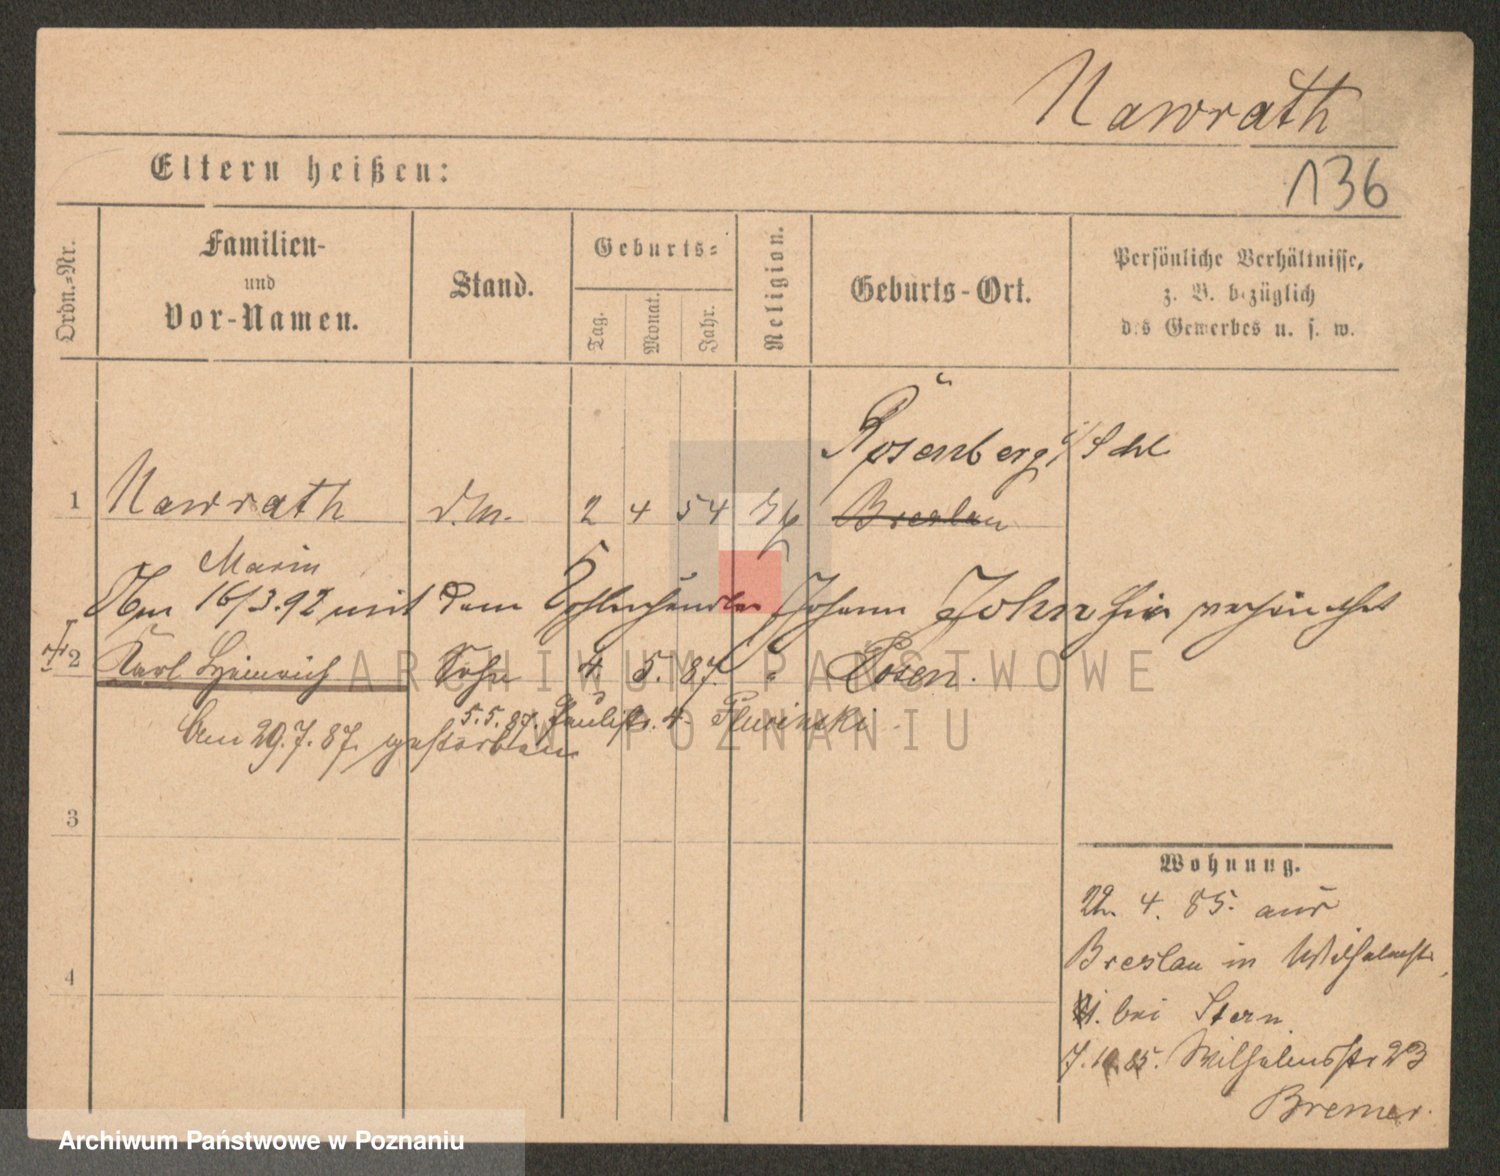 Nawrath
Eltern heißen:
136
Ordn.-Nr.
Familien-
und
Vor-Namen.
Stand.
Geburts-
Tag.
Monat.
Jahr.
Religion.
Geburts-Ort.
Persönliche Verhältnisse,
z. B. bezüglich
des Gewerbes u. s. w.
Rosenberg i/Schl
1 Nawrath d.M. 2 4 54 Breslau
Marie
Am 16/3.92 mit dem Kohlenhändler Johann John hier verheirathet
2 Karl Heinrich Sohn 4. 5. 87. " Posen.
5.5.87. Paulistr. 4. Plucinski
Am 29.7.87. gestorben
3
4
Wohnung.
22. 4. 85. aus
Breslau in Wilhelmstr.
bei Stern
7.10.85. Wilhelmsstr 23
Bremer.
ARCHIWUM PAŃSTWOWE
W POZNANIU
Archiwum Państwowe w Poznaniu